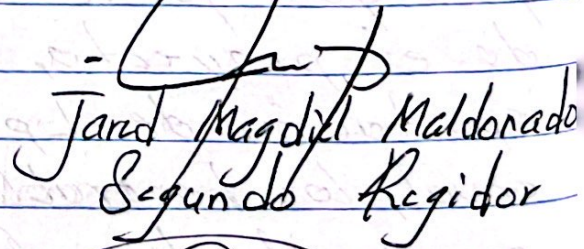 Jared Magdiel Maldonado
Segundo Regidor